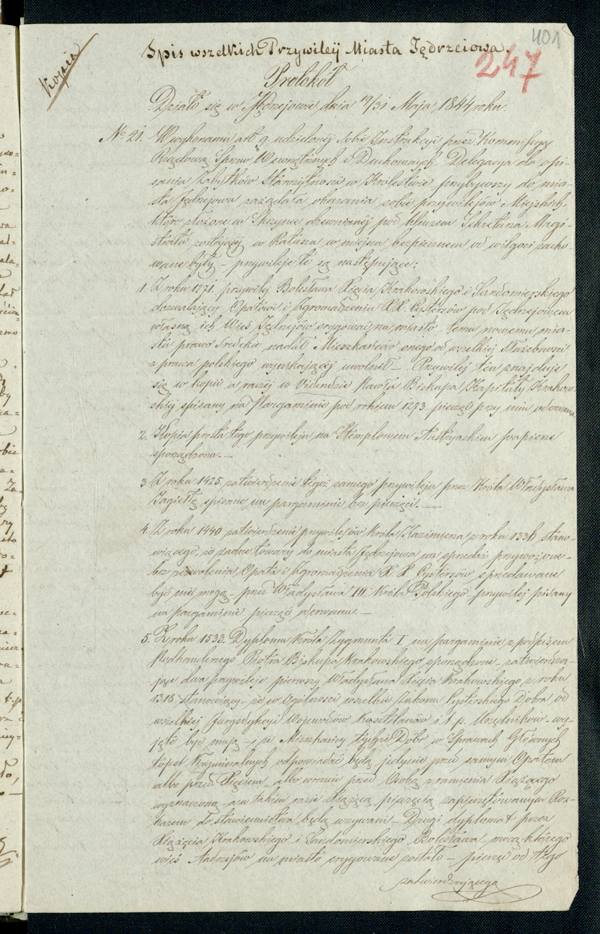 401
247
Kopia
Spis wszelkich Przywileij Miasta Jędrzeiowa.
Protokół
Działo się w Jędrzejowie dnia 19/31 Maja 1844 roku.
No 21. W wykonaniu art. 9. udzieloney sobie Instrukcyi przez Kommissyą
Rządową Spraw Wewnętrznych i Duchownych, Delegacja do opi-
sania zabytków Starożytności w Królestwie przybywszy do mia-
sta Jędrzejowa zażądała okazania sobie przywilejów Miejskich
które złożone w Skrzynce drewnianej pod kluczem Sekretarza Magi-
stratu zostającej w Ratuszu w miejscu bezpiecznem od wilgoci zacho-
wane były – przywileje te są następujące:
1. Z roku 1271. przywilej Bolesława Xięcia Krakowskiego i Sandomierskiego
dozwalający Opatowi i Zgromadzeniu XX. Cystersów pod Jędrzejowem
własną ich Wieś Jędrzejów erygować na miasto temu nowemu mia-
stu prawo Średzkie nadał Mieszkańców onego od wszelkiej Służebności
z prawa polskiego wynikającej uwolnił – Przywilej ten znajduje
się w kopii a raczej w Videndzie Pawła Biskupa i Kapituły Krakow-
skiej spisany na Pargaminie pod rokiem 1273. pieczęć przy nim oderwana
2. Kopia prosta tego przywileju na Stemplowem Austryackim papierze
sporządzona. –
3. Z roku 1425. zatwierdzenie tegoż samego przywileju przez Króla Władysława
Jagiełłę, spisane na pargaminie bez pieczęci. –
4. Z roku 1440. zatwierdzenie przywilejów Króla Kazimierza z roku 1336 stano-
wiącego, że żadne towary do miasta Jędrzejowa na sprzedaż przywożone
bez zezwolenia Opata i Zgromadzenia X. X. Cystersów sprzedawane
być nie mogą – przez Władysława III. Króla Polskiego przywilej pisany
na pargaminie pieczęć oderwana –
5. Z roku 1533. Dyplom Króla Zygmunta I. na pargaminie z podpisem
Podkanclerzego Piotra Biskupa Krakowskiego sporządzony – zatwierdza-
jące dwa przywileje pierwszy Władysława Xięcia Krakowskiego z roku
1318 stanowiący – że w Ogólności wszelkie Zakonu Cysterskiego Dobra od
wszelkiej Juryzdykcyi Wojewodów Kasztelanów i t. p. Urzędników wy-
jęte być mają – że Mieszkańcy tychże Dóbr w Sprawach Głównych
tudzież Kryminalnych odpowiadać będą jedynie przed samym Opatem
albo przed Xięciem, albo wreszcie przed Osobą z ramienia Książęcego
wyznaczoną – a w takim razie Książęcą pieczęcią zapieczętowanym Roz-
kazem do stawiennictwa będą wzywani – Drugi dyplomat przez
Książęcia Krakowskiego i Sandomierskiego Bolesława, mocą którego
wieś Andrzejów na miasto erygowane zostało – pieczęć od tego
zatwierdzającego